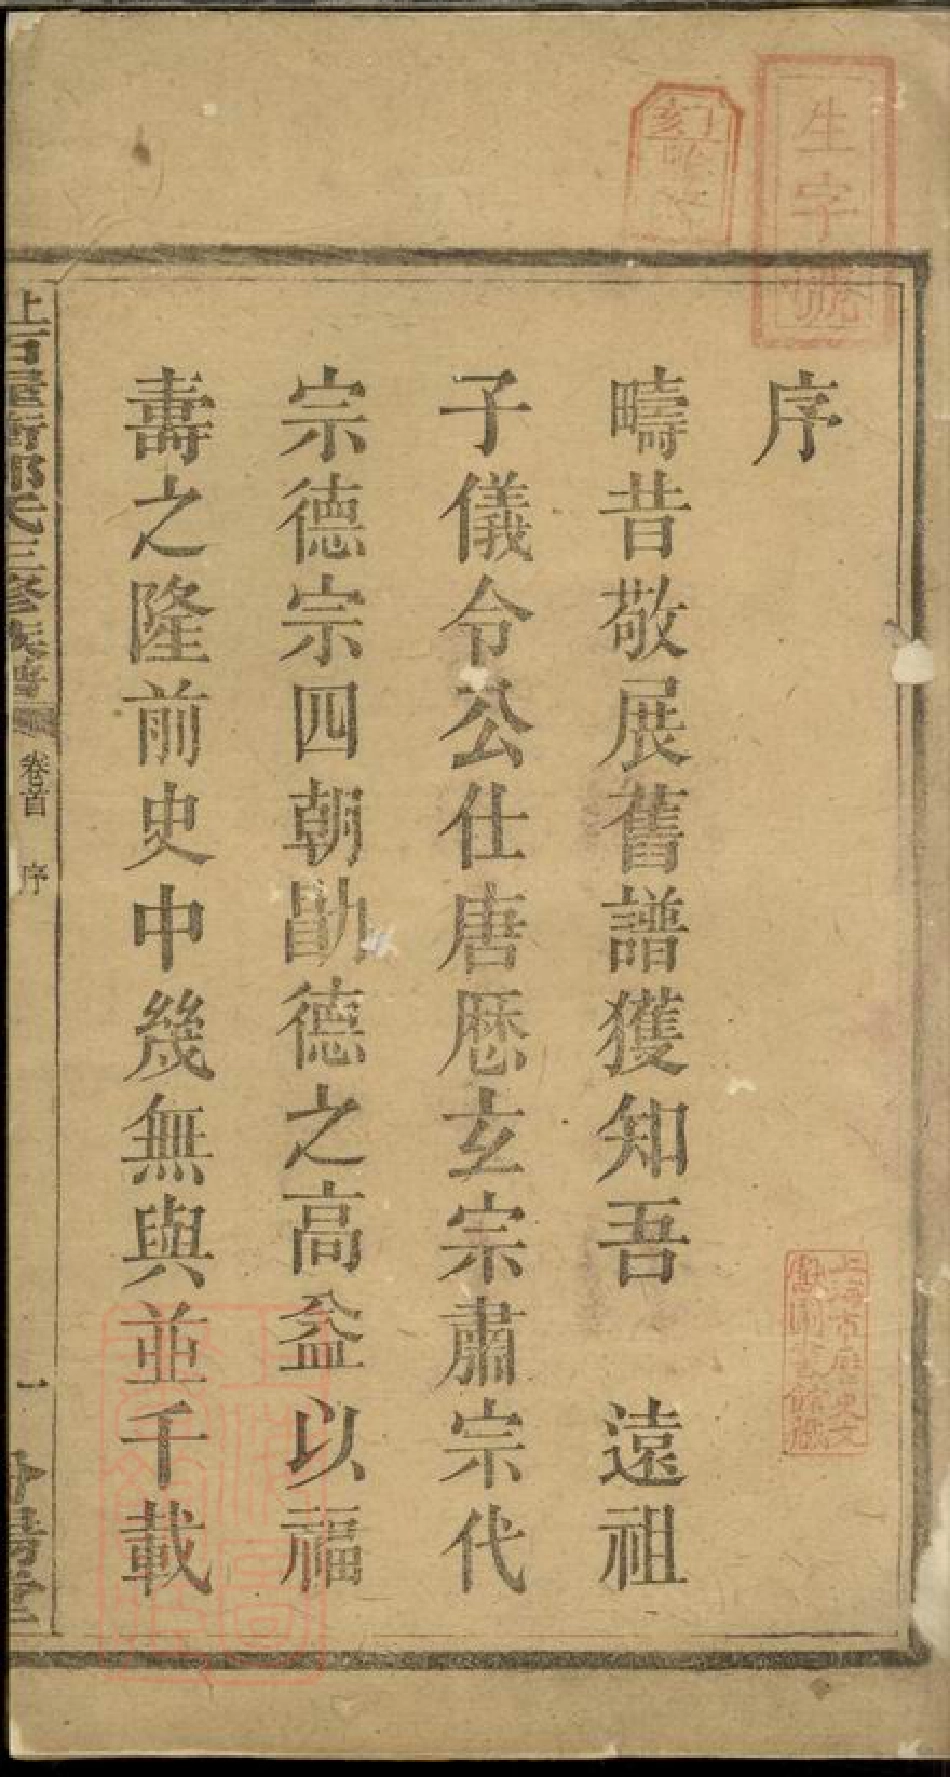 生字號
序
疇昔敬展舊譜獲知吾 遠祖
子儀令公仕唐厯玄宗肅宗代
宗德宗四朝勛德之高益以福
壽之隆前史中幾無與並千載
上石𡉏衕郭氏三修族譜 卷首 序 一
上海市歷史文
獻圖書館藏